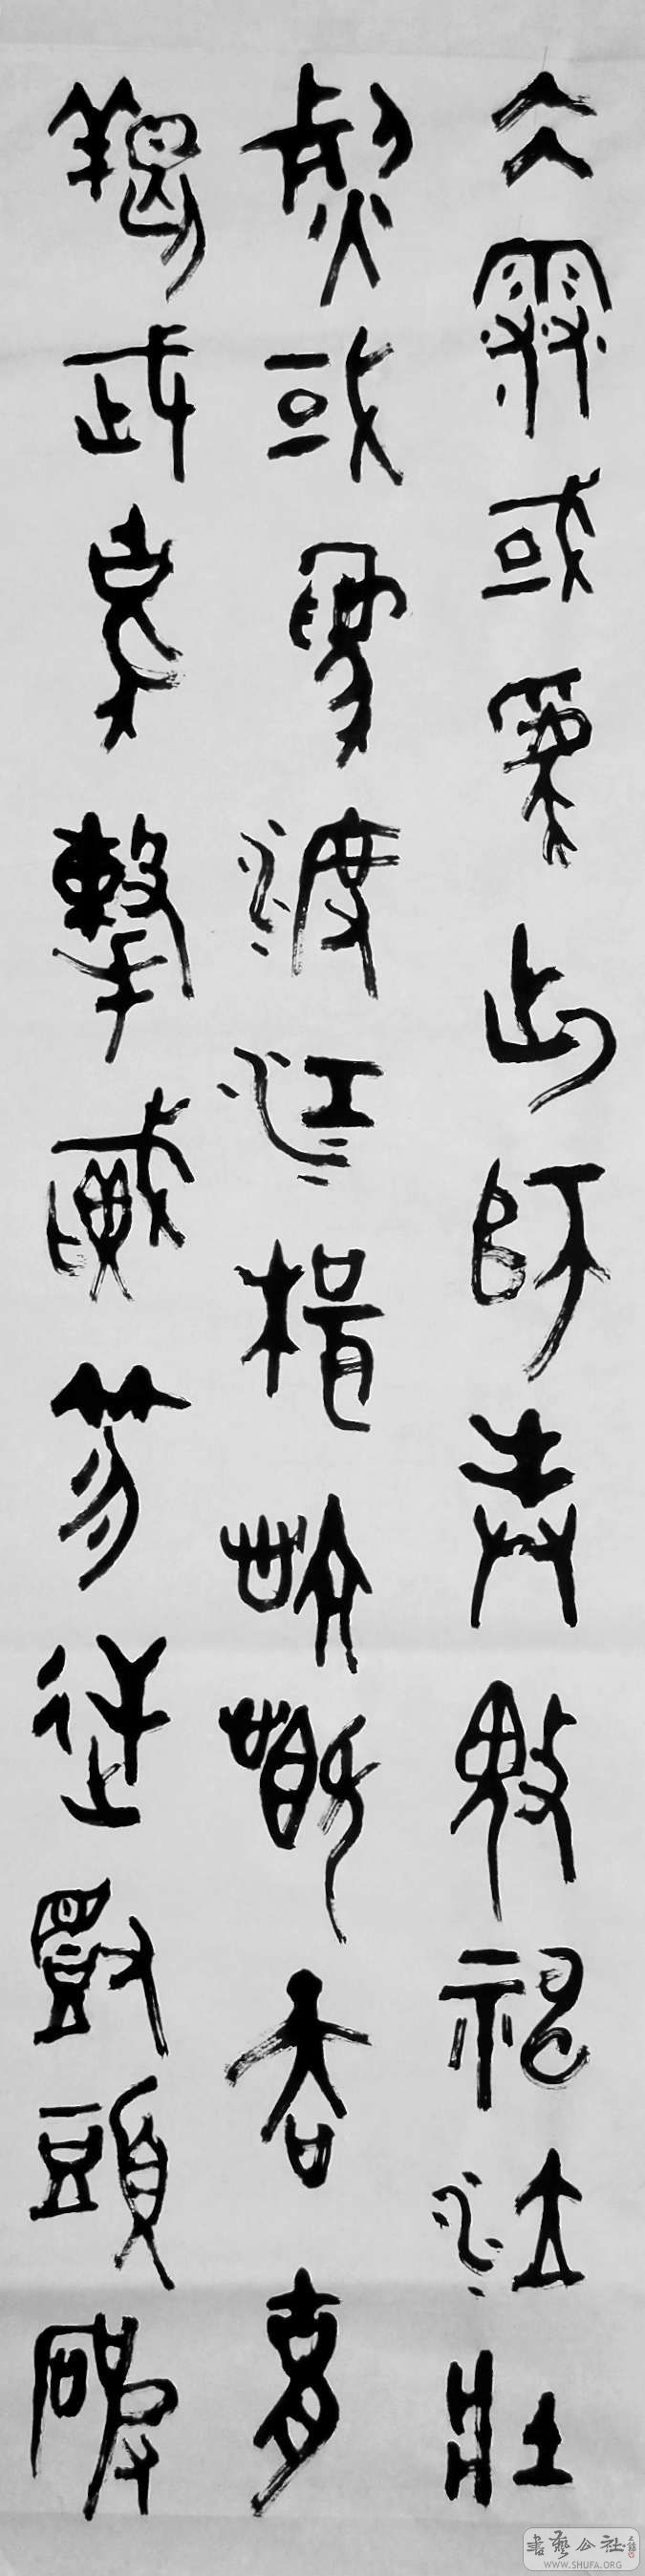 冰雪或為出師表鬼神泣壯
烈或為渡江楫慷慨吞胡
羯或為擊賊笏逆豎頭破
書藝公社
WWW.SHUFA.ORG